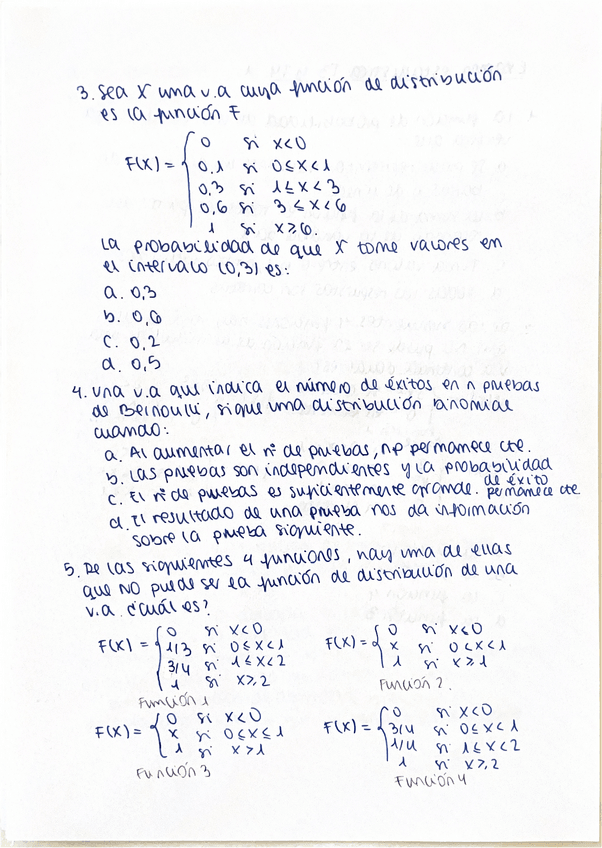 3. Sea X una v.a cuya función de distribución
es la función F
F(x) = { 0 si x<0
0,1 si 0≤x<1
0,3 si 1≤x<3
0,6 si 3≤x<6
1 si x≥6.
La probabilidad de que X tome valores en
el intervalo (0,3) es:
a. 0,3
b. 0,6
c. 0,2
d. 0,5
4. Una v.a que indica el número de éxitos en n pruebas
de Bernoulli, sigue una distribución binomial
cuando:
a. Al aumentar el nº de pruebas, np permanece cte.
b. Las pruebas son independientes y la probabilidad
de éxito permanece cte
c. El nº de pruebas es suficientemente grande.
d. El resultado de una prueba nos da información
sobre la prueba siguiente.
5. De las siguientes 4 funciones, hay una de ellas
que NO puede ser la función de distribución de una
v.a. ¿cuál es?
F(x) = { 0 si x<0
1/3 si 0≤x<1
3/4 si 1≤x<2
1 si x≥2
Función 1
F(x) = { 0 si x≤0
x si 0<x<1
1 si x≥1
Función 2.
F(x) = { 0 si x<0
x si 0≤x≤1
1 si x>1
Función 3
F(x) = { 0 si x<0
3/4 si 0≤x<1
1/4 si 1≤x<2
1 si x≥2
Función 4